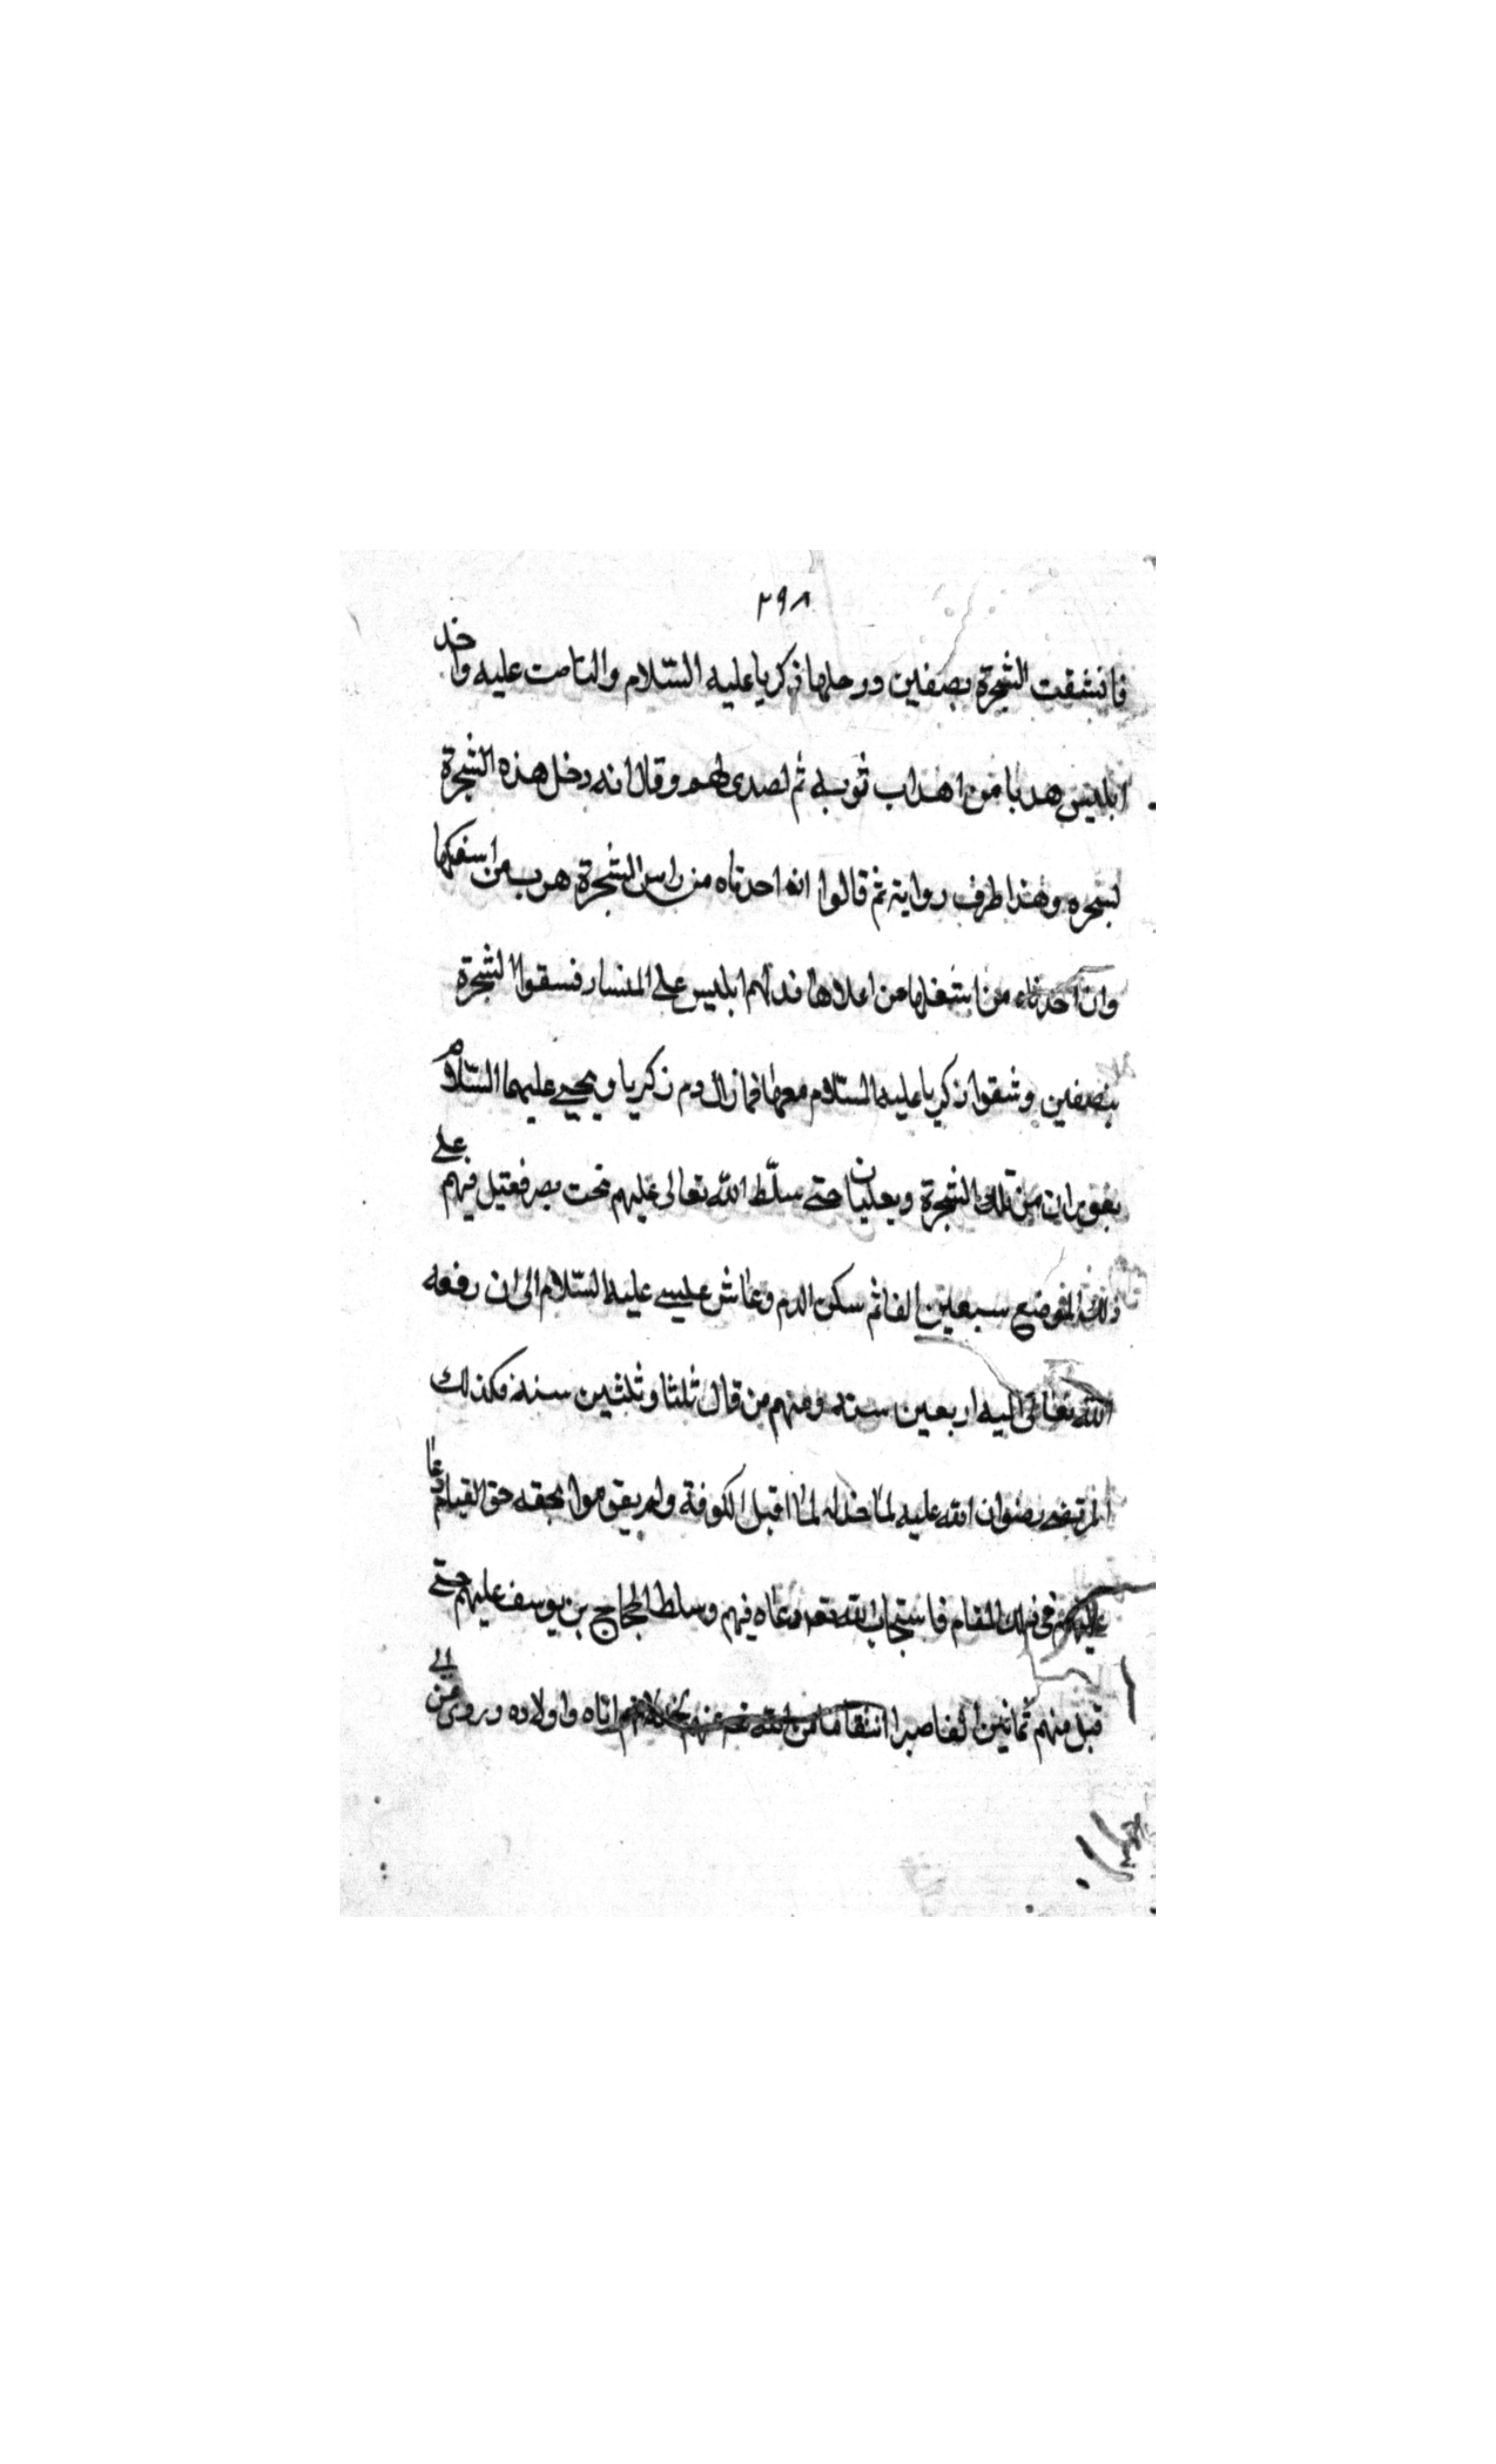 ٢٩٨
فانشقت الشجرة بصفين ودخلها زكريا عليه السّلام والتامت عليه واخذ
ابليس هدبا من اهداب ثوبه ثم تصدى لهم وقال انه دخل هذه الشجرة
لسحره وهذا طرف رواية ثم قالوا انه اخذناه من راس الشجرة هرب من اسفلها
وان اخذناه من اسفلها من اعلاها فدلهم ابليس على المنسار فسقوا الشجرة
بنصفين وشقوا زكريا عليه السّلام معها فما زال دم زكريا ويحيى عليهما السّلام
يفوران من تلك الشجرة ويعليان حتى سلّط الله تعالى عليهم بخت نصر فقتل فيهم على
ذلك الموضع سبعين الفا ثم سكن الدم وعاش عيسى عليه السّلام الى ان رفعه
الله تعالى اليه اربعين سنة ومنهم من قال ثلثا وثلثين سنة فكذلك
المرتضى رضوان الله عليه لما خذله لما اقبل الكوفة ولم يقوموا بحقه حق القيام دعا
عليهم في ذلك المقام فاستجاب الله دعاه فيهم وسلط الحجاج بن يوسف عليهم حتى
قتل منهم ثمانين الفا صبرا انتقاما من الله منهم بخذلانهم اياه واولاده وروى